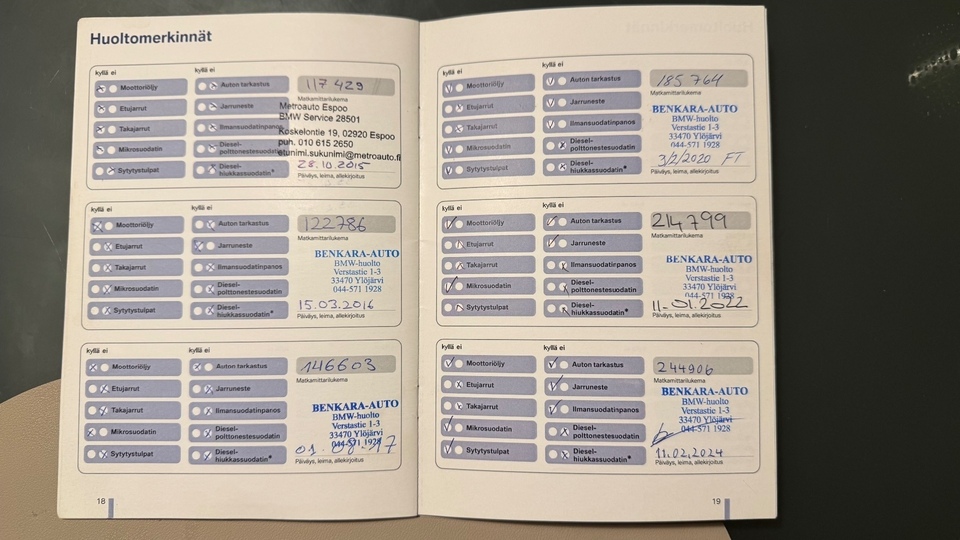 Huoltomerkinnät
kyllä ei kyllä ei
Moottoriöljy Auton tarkastus 117 429
Matkamittarilukema
Etujarrut Jarruneste
Metroauto Espoo
BMW Service 28501
Takajarrut Ilmansuodatinpanos
Koskelontie 19, 02920 Espoo
puh. 010 615 2650
Mikrosuodatin Diesel-
polttonestesuodatin
etunimi.sukunimi@metroauto.fi
Sytytystulpat Diesel-
hiukkassuodatin*
28.10.2015
Päiväys, leima, allekirjoitus
kyllä ei kyllä ei
Moottoriöljy Auton tarkastus 122786
Matkamittarilukema
Etujarrut Jarruneste
BENKARA-AUTO
BMW-huolto
Takajarrut Ilmansuodatinpanos
Verstastie 1-3
33470 Ylöjärvi
Mikrosuodatin Diesel-
polttonestesuodatin
044-571 1928
Sytytystulpat Diesel-
hiukkassuodatin*
15.03.2016
Päiväys, leima, allekirjoitus
kyllä ei kyllä ei
Moottoriöljy Auton tarkastus 146603
Matkamittarilukema
Etujarrut Jarruneste
BENKARA-AUTO
BMW-huolto
Takajarrut Ilmansuodatinpanos
Verstastie 1-3
33470 Ylöjärvi
Mikrosuodatin Diesel-
polttonestesuodatin
044-571 1928
Sytytystulpat Diesel-
hiukkassuodatin*
Päiväys, leima, allekirjoitus
18
kyllä ei kyllä ei
Moottoriöljy Auton tarkastus 185 764
Matkamittarilukema
Etujarrut Jarruneste
BENKARA-AUTO
BMW-huolto
Takajarrut Ilmansuodatinpanos
Verstastie 1-3
33470 Ylöjärvi
Mikrosuodatin Diesel-
polttonestesuodatin
044-571 1928
Sytytystulpat Diesel-
hiukkassuodatin*
3/2/2020 FT
Päiväys, leima, allekirjoitus
kyllä ei kyllä ei
Moottoriöljy Auton tarkastus 214799
Matkamittarilukema
Etujarrut Jarruneste
BENKARA-AUTO
BMW-huolto
Takajarrut Ilmansuodatinpanos
Verstastie 1-3
33470 Ylöjärvi
Mikrosuodatin Diesel-
polttonestesuodatin
044-571 1928
Sytytystulpat Diesel-
hiukkassuodatin*
11.01.2022
Päiväys, leima, allekirjoitus
kyllä ei kyllä ei
Moottoriöljy Auton tarkastus 244906
Matkamittarilukema
Etujarrut Jarruneste
BENKARA-AUTO
BMW-huolto
Takajarrut Ilmansuodatinpanos
Verstastie 1-3
33470 Ylöjärvi
Mikrosuodatin Diesel-
polttonestesuodatin
044-571 1928
Sytytystulpat Diesel-
hiukkassuodatin*
11.02.2024
Päiväys, leima, allekirjoitus
19